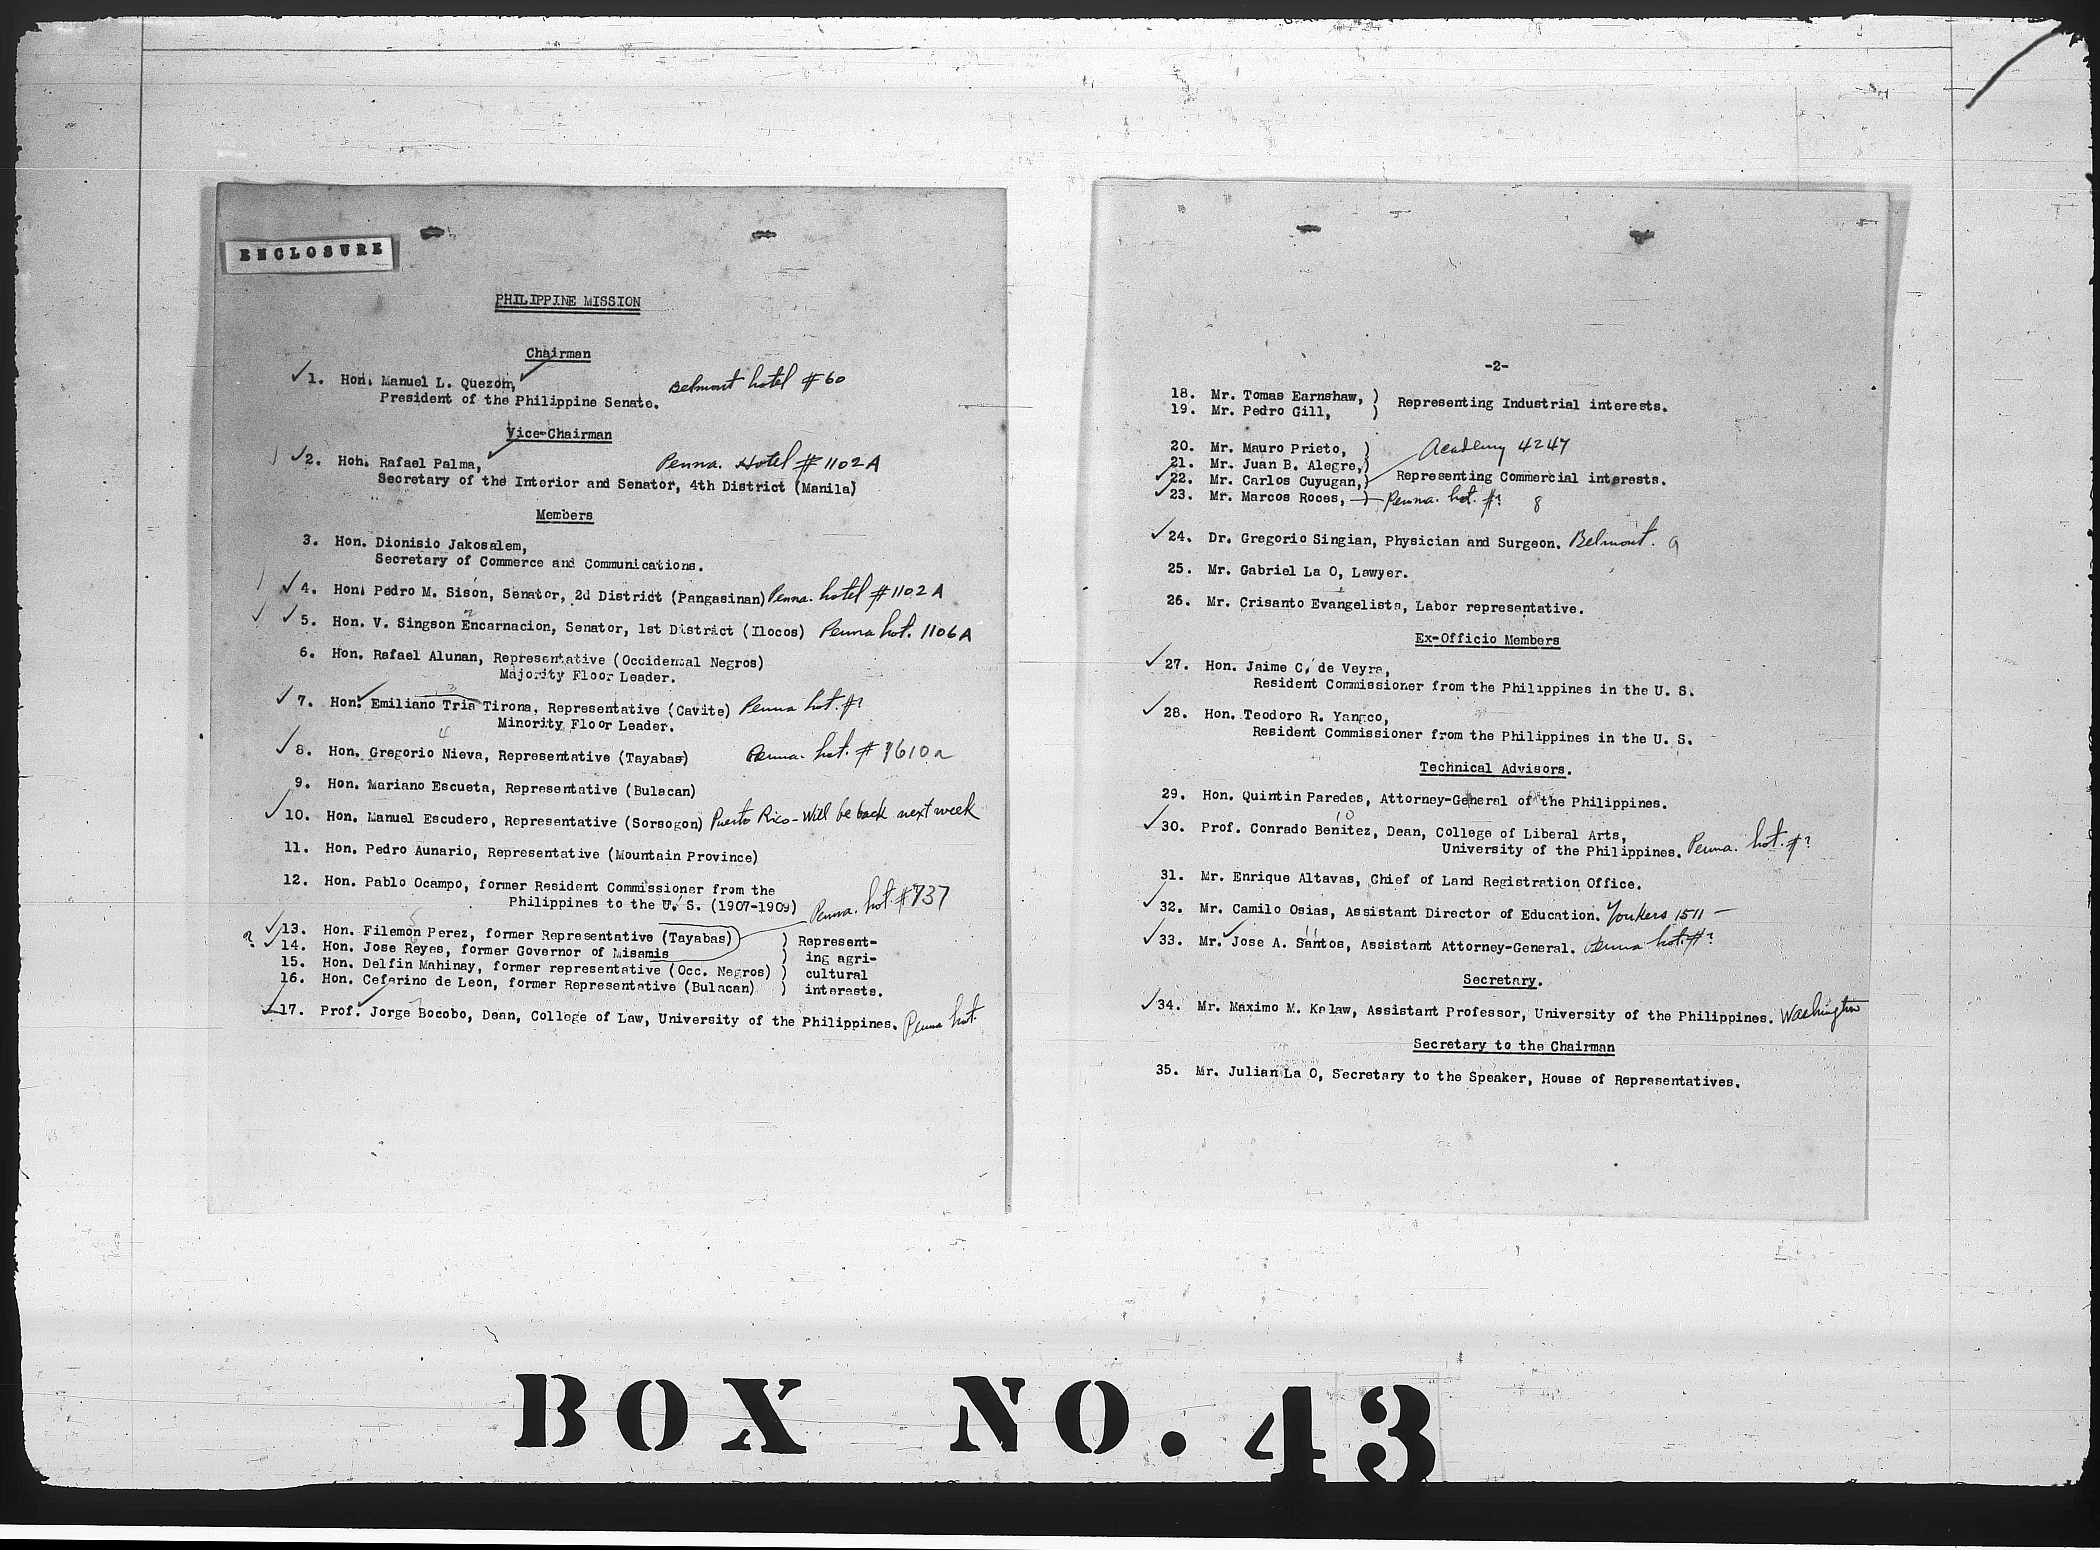 ENCLOSURE
PHILIPPINE MISSION
Chairman
1. Hon. Manuel L. Quezon, Belmont hotel #60
President of the Philippine Senate.
Vice-Chairman
2. Hon. Rafael Palma, Penna. Hotel #1102A
Secretary of the Interior and Senator, 4th District (Manila)
Members
3. Hon. Dionisio Jakosalem,
Secretary of Commerce and Communications.
4. Hon. Pedro M. Sison, Senator, 2d District (Pangasinan) Penna. hotel #1102A
5. Hon. V. Singson Encarnacion, Senator, 1st District (Ilocos) Penna hot. 1106A
6. Hon. Rafael Alunan, Representative (Occidental Negros)
Majority Floor Leader.
7. Hon. Emiliano Tria Tirona, Representative (Cavite) Penna hot. #?
Minority Floor Leader.
8. Hon. Gregorio Nieva, Representative (Tayabas) Penna. hot. #1610a
9. Hon. Mariano Escueta, Representative (Bulacan)
10. Hon. Manuel Escudero, Representative (Sorsogon) Puerto Rico - Will be back next week
11. Hon. Pedro Aunario, Representative (Mountain Province)
12. Hon. Pablo Ocampo, former Resident Commissioner from the
Philippines to the U. S. (1907-1909) Penna. hot. #737
? 13. Hon. Filemon Perez, former Representative (Tayabas) ) Represent-
14. Hon. Jose Reyes, former Governor of Misamis ) ing agri-
15. Hon. Delfin Mahinay, former representative (Occ. Negros) ) cultural
16. Hon. Ceferino de Leon, former Representative (Bulacan) ) interests.
17. Prof. Jorge Bocobo, Dean, College of Law, University of the Philippines. Penna hot.
-2-
18. Mr. Tomas Earnshaw, )
19. Mr. Pedro Gill, ) Representing Industrial interests.
20. Mr. Mauro Prieto, ) Academy 4247
21. Mr. Juan B. Alegre, )
22. Mr. Carlos Cuyugan, ) Representing Commercial interests.
23. Mr. Marcos Roces, ) Penna. hot. #? 8
24. Dr. Gregorio Singian, Physician and Surgeon. Belmont. 9
25. Mr. Gabriel La O, Lawyer.
26. Mr. Crisanto Evangelista, Labor representative.
Ex-Officio Members
27. Hon. Jaime C. de Veyra,
Resident Commissioner from the Philippines in the U. S.
28. Hon. Teodoro R. Yangco,
Resident Commissioner from the Philippines in the U. S.
Technical Advisors.
29. Hon. Quintin Paredes, Attorney-General of the Philippines.
30. Prof. Conrado Benitez, Dean, College of Liberal Arts,
University of the Philippines. Penna. hot. #?
31. Mr. Enrique Altavas, Chief of Land Registration Office.
32. Mr. Camilo Osias, Assistant Director of Education. Yonkers 1511 -
33. Mr. Jose A. Santos, Assistant Attorney-General. Penna hot. #?
Secretary.
34. Mr. Maximo M. Kalaw, Assistant Professor, University of the Philippines. Washington
Secretary to the Chairman
35. Mr. Julian La O, Secretary to the Speaker, House of Representatives.
BOX NO. 43